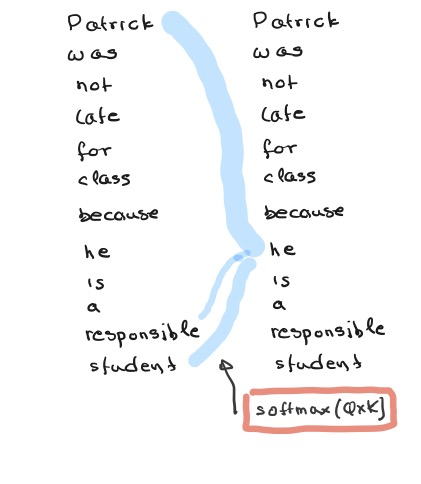 Patrick
was
not
late
for
class
because
he
is
a
responsible
student
Patrick
was
not
late
for
class
because
he
is
a
responsible
student
softmax(QxK]